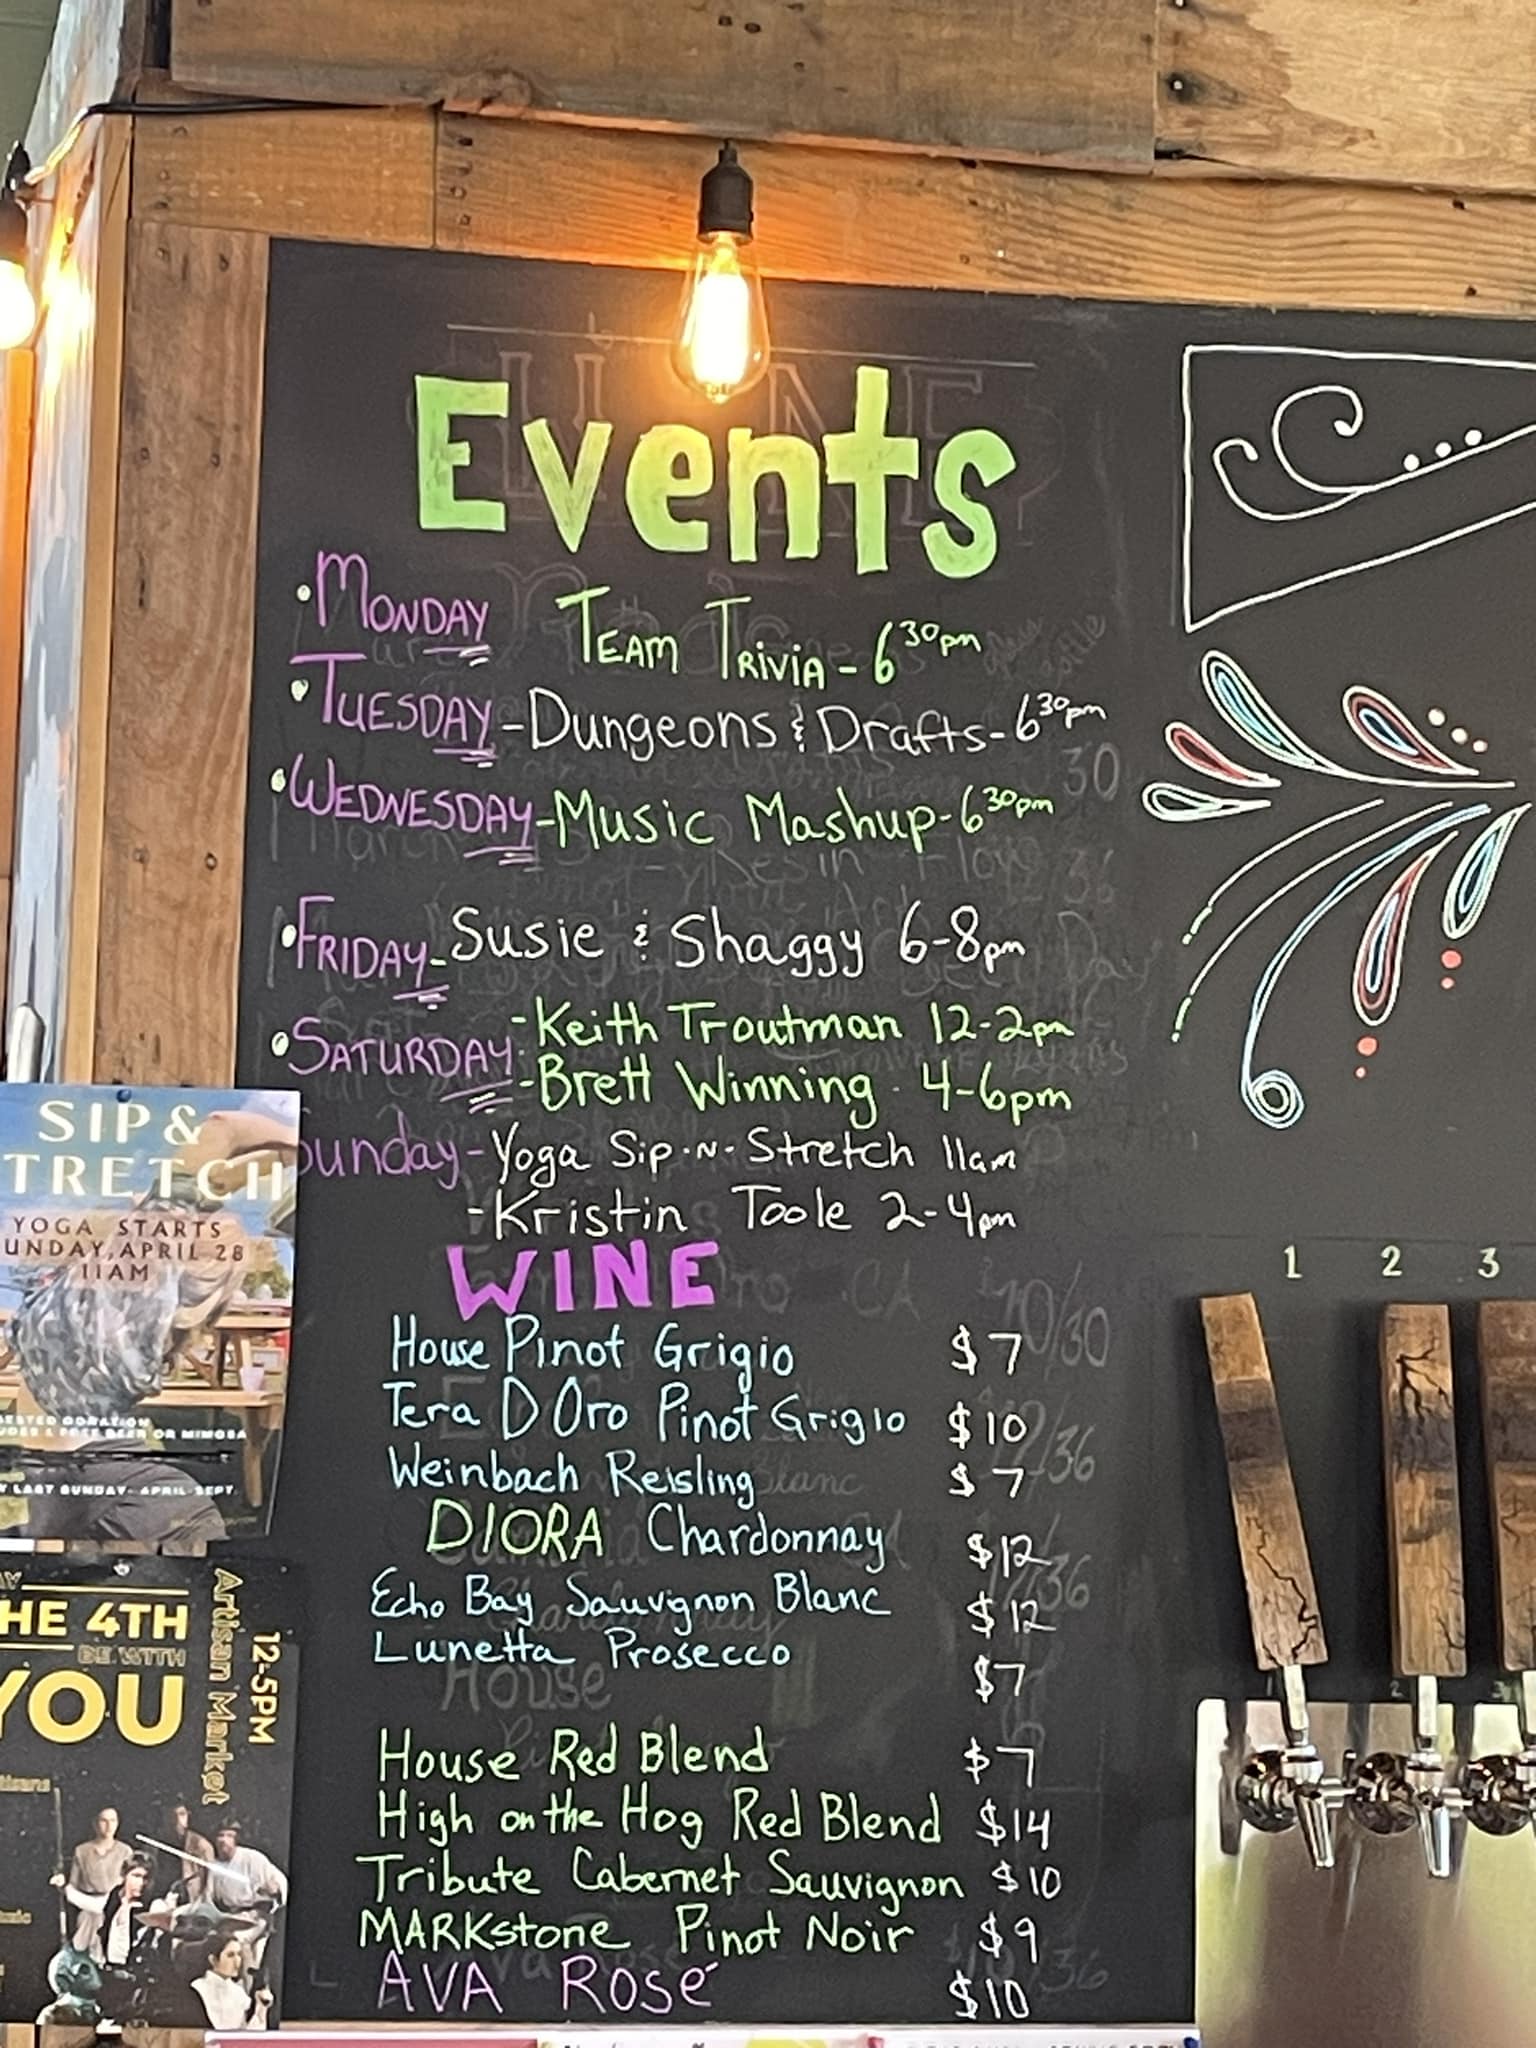 Events
• MONDAY TEAM TRIVIA - 6 30pm
• TUESDAY - Dungeons & Drafts - 6 30pm
• WEDNESDAY - Music Mashup - 6 30pm
• FRIDAY - Susie & Shaggy 6-8pm
• SATURDAY: - Keith Troutman 12-2pm
- Brett Winning 4-6pm
Sunday - Yoga Sip-N-Stretch 11am
- Kristin Toole 2-4pm
WINE
House Pinot Grigio $7
Tera D Oro Pinot Grigio $10
Weinbach Reisling $7
DIORA Chardonnay $12
Echo Bay Sauvignon Blanc $12
Lunetta Prosecco $7
House Red Blend $7
High on the Hog Red Blend $14
Tribute Cabernet Sauvignon $10
MARKstone Pinot Noir $9
AVA Rosé $10
1 2 3
SIP &
TRETCH
YOGA STARTS
UNDAY, APRIL 28
11AM
OR MIMOSA
LAST SUNDAY - APRIL-SEPT
HE 4TH
BE WITH
YOU
Artisan Market
12-5PM